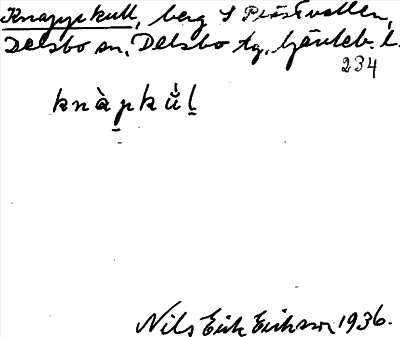 Knappekull, berg S Prästvallen,
Delsbo sn. Delsbo tg. Gävleb. l.
234
knàpkǜl
Nils Erik Eriksson 1936.